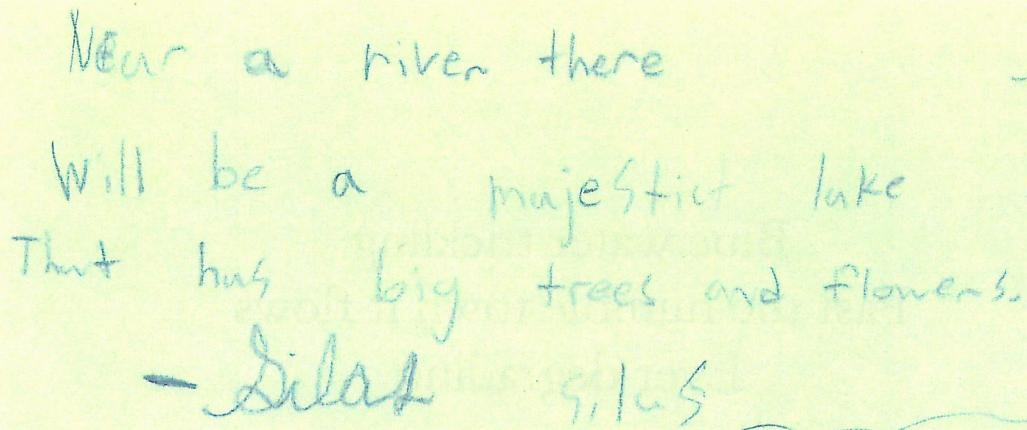 Near a river there
Will be a majestict lake
That has big trees and flowers.
- Silas silas